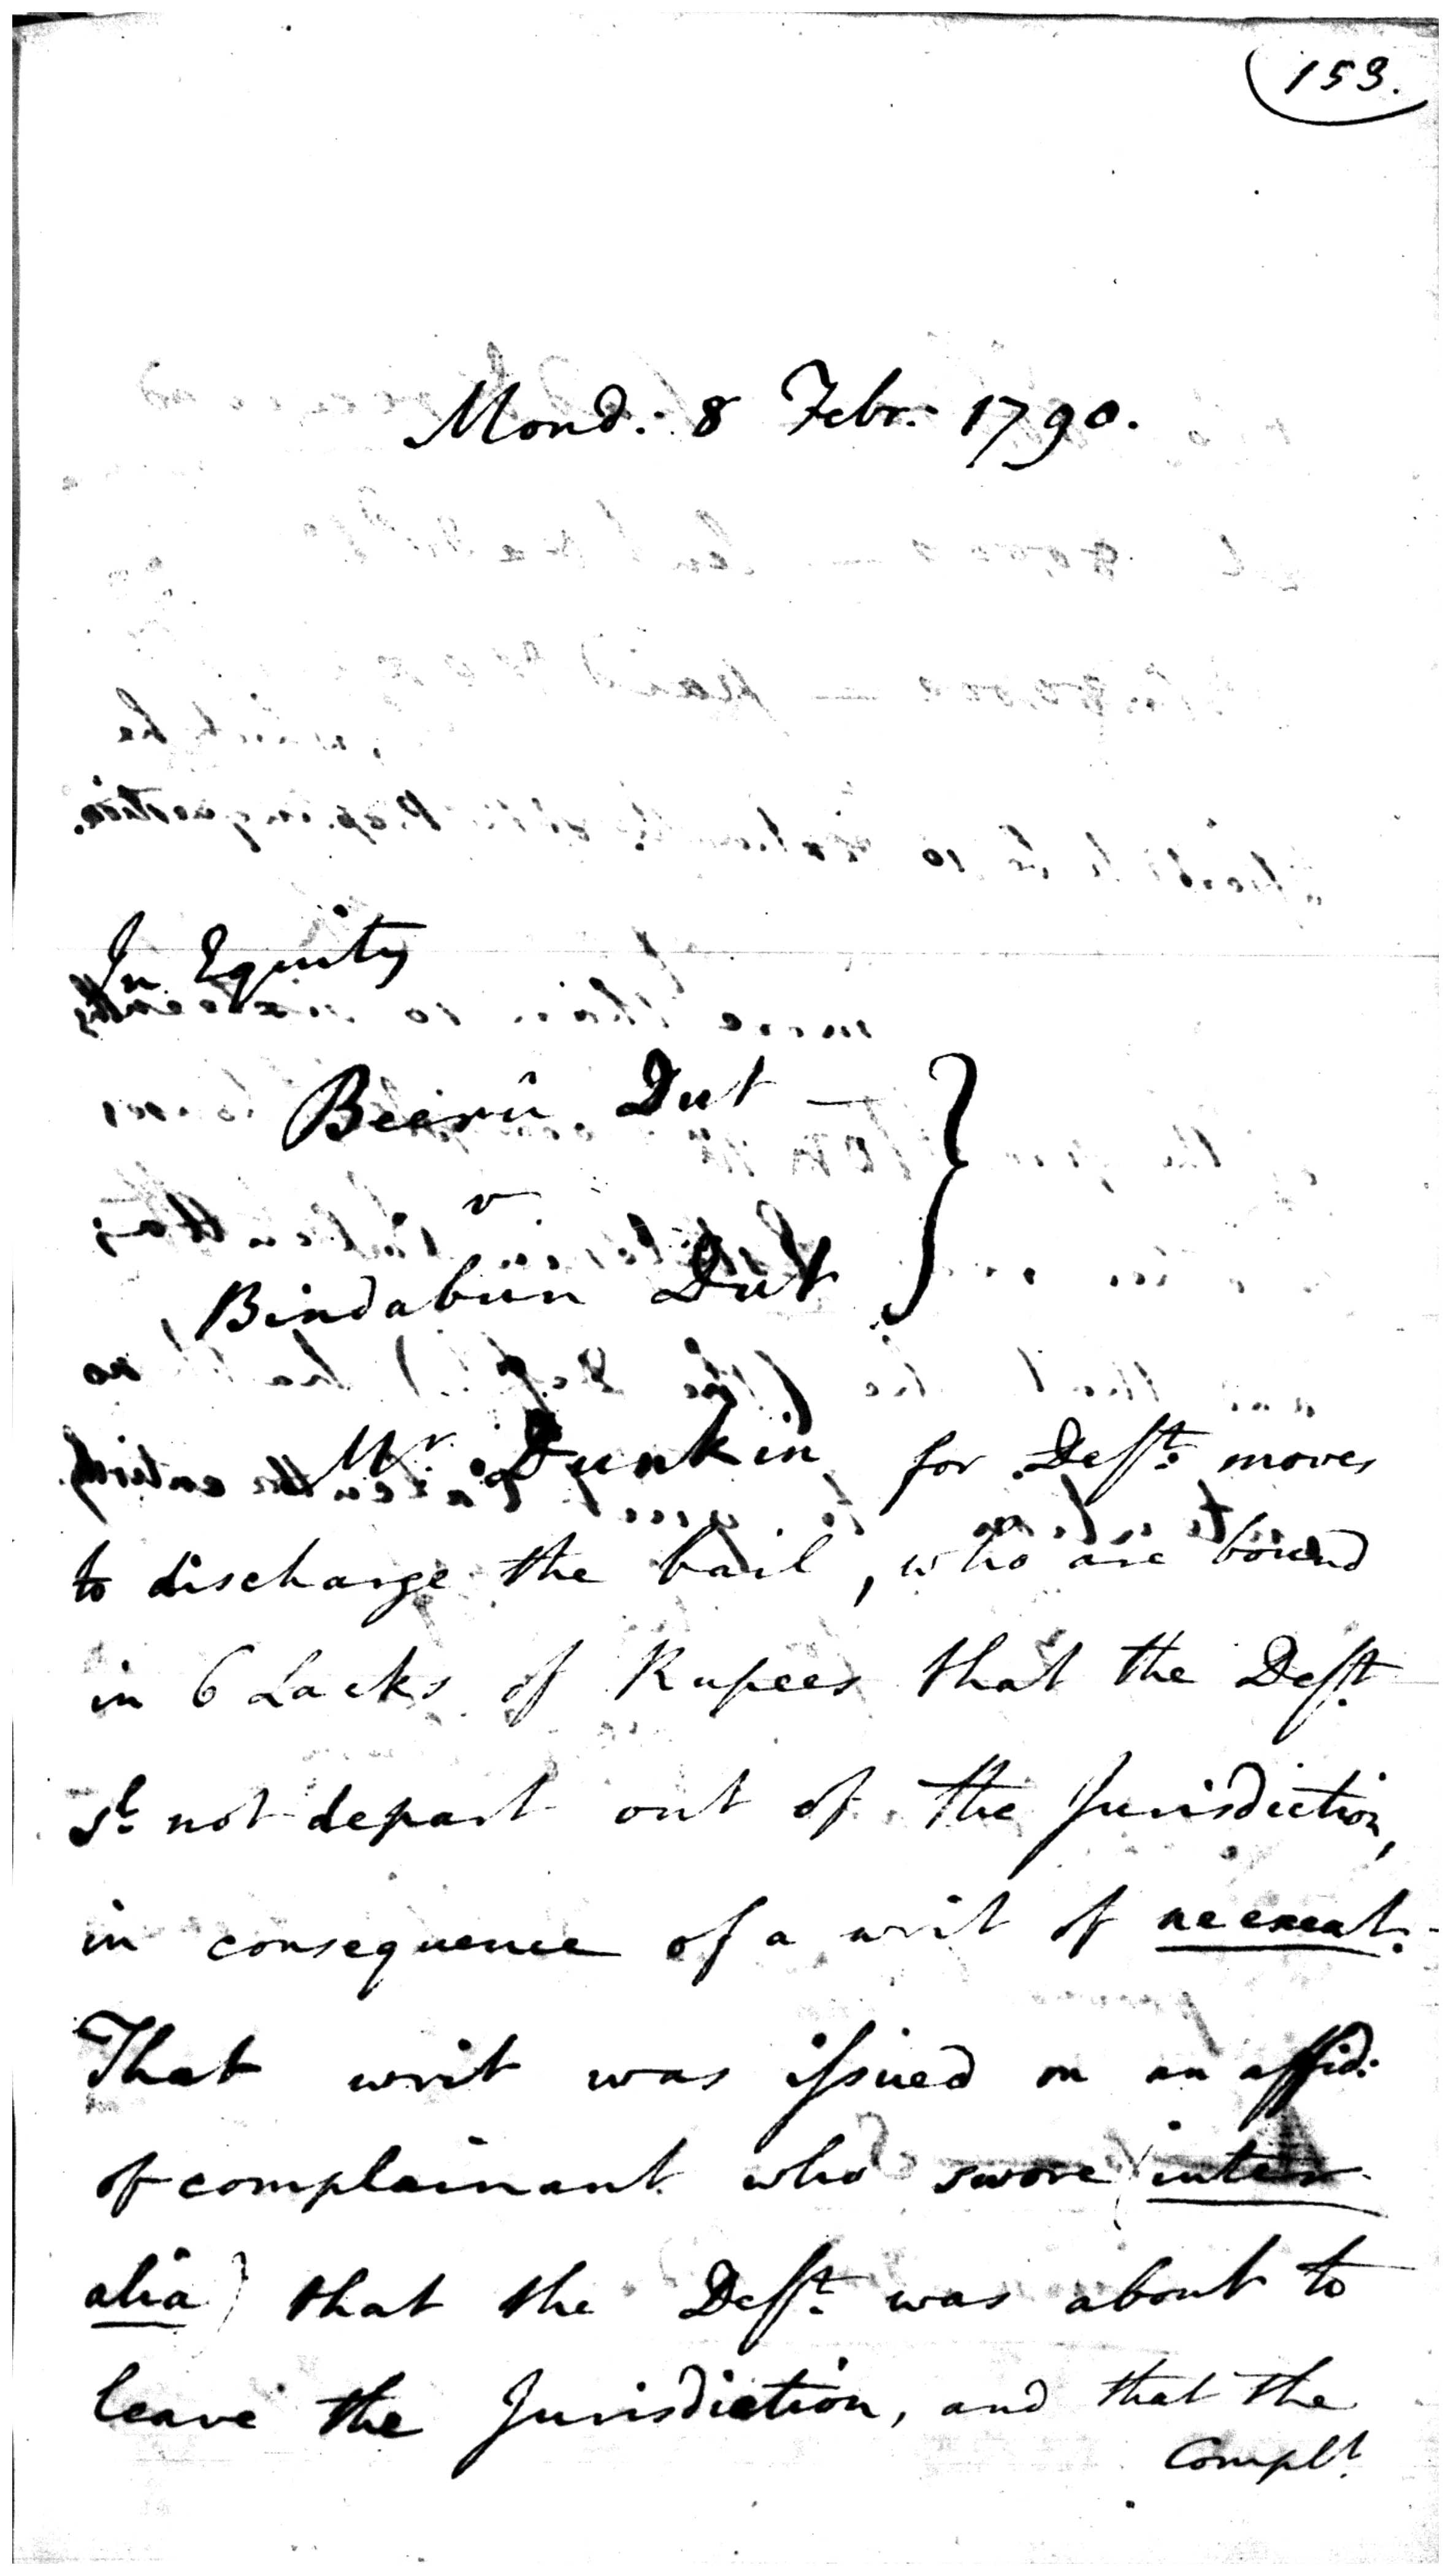 153.
Mond. 8 Febr. 1790.
In Equity
Beerû Dut
v
Bindabun Dut
Mr. Dunkin for Deft. moves
to discharge the bail, who are bound
in 6 Lacks of Rupees that the Deft.
sd. not depart out of the Jurisdiction,
in consequence of a writ of ne exeat.
That writ was issued on an affid:
of complainant who swore (inter
alia) that the Deft. was about to
leave the Jurisdiction, and that the
Complt.